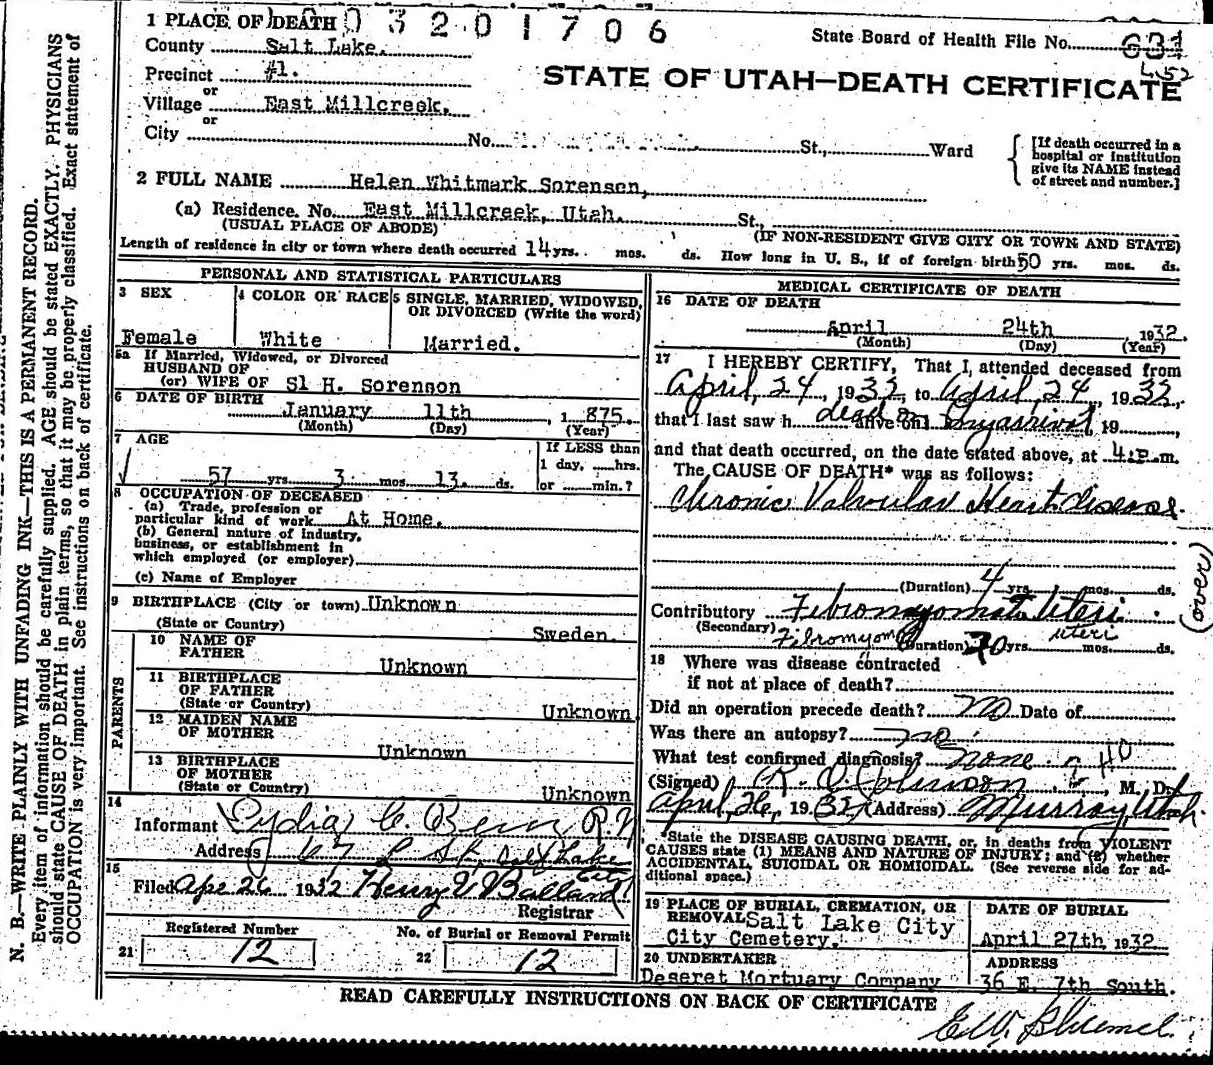 1 PLACE OF DEATH 0 3 2 0 1 7 0 6
State Board of Health File No. 631
452
County Salt Lake.
Precinct #1.
or
Village East Millcreek.
or
City No. St., Ward
[If death occurred in a hospital or institution give its NAME instead of street and number.]
STATE OF UTAH—DEATH CERTIFICATE
2 FULL NAME Helen Whitmark Sorenson,
(a) Residence. No. East Millcreek, Utah. St.,
(USUAL PLACE OF ABODE) (IF NON-RESIDENT GIVE CITY OR TOWN AND STATE)
Length of residence in city or town where death occurred 14 yrs. mos. ds. How long in U. S., if of foreign birth 50 yrs. mos. ds.
PERSONAL AND STATISTICAL PARTICULARS
3 SEX
Female
4 COLOR OR RACE
White
5 SINGLE, MARRIED, WIDOWED,
OR DIVORCED (Write the word)
Married.
5a If Married, Widowed, or Divorced
HUSBAND OF
(or) WIFE OF Sl H. Sorenson
6 DATE OF BIRTH
January 11th 1 875.
(Month) (Day) (Year)
7 AGE
57 yrs. 3 mos. 13. ds.
If LESS than
1 day, hrs.
or min.?
8 OCCUPATION OF DECEASED
(a) Trade, profession or
particular kind of work At Home.
(b) General nature of industry,
business, or establishment in
which employed (or employer)
(c) Name of Employer
9 BIRTHPLACE (City or town) Unknown
(State or Country) Sweden.
PARENTS
10 NAME OF
FATHER Unknown
11 BIRTHPLACE
OF FATHER
(State or Country) Unknown
12 MAIDEN NAME
OF MOTHER Unknown
13 BIRTHPLACE
OF MOTHER
(State or Country) Unknown
14
Informant Lydia C. R.N
Address Salt Lake
City
15
Filed Apr 26 1932 Henry Ballard
Registrar
Registered Number
21 12
No. of Burial or Removal Permit
22 12
MEDICAL CERTIFICATE OF DEATH
16 DATE OF DEATH
April 24th 1932.
(Month) (Day) (Year)
17 I HEREBY CERTIFY, That I attended deceased from
April, 24, 1932, to April, 24, 1932,
that I last saw h dead on alive on my arrival, 19
and that death occurred, on the date stated above, at 4:P.m.
The CAUSE OF DEATH* was as follows:
Chronic Valvular Heart disease.
(over)
(Duration) 4 yrs. mos. ds.
Contributory Fibromyomata Uteri
(Secondary) Fibromyoma uteri
(Duration) 20 yrs. mos. ds.
18 Where was disease contracted
if not at place of death?
Did an operation precede death? no Date of
Was there an autopsy? no
What test confirmed diagnosis? none
(Signed) Johnson, M. D.
April, 26, 1932 (Address) Murray Utah.
*State the DISEASE CAUSING DEATH, or, in deaths from VIOLENT
CAUSES state (1) MEANS AND NATURE OF INJURY; and (2) whether
ACCIDENTAL, SUICIDAL OR HOMICIDAL. (See reverse side for ad-
ditional space.)
19 PLACE OF BURIAL, CREMATION, OR
REMOVAL Salt Lake City
City Cemetery.
DATE OF BURIAL
April 27th, 1932
20 UNDERTAKER
Deseret Mortuary Company
ADDRESS
36 E. 7th South.
READ CAREFULLY INSTRUCTIONS ON BACK OF CERTIFICATE
N. B.—WRITE PLAINLY WITH UNFADING INK—THIS IS A PERMANENT RECORD.
Every item of information should be carefully supplied. AGE should be stated EXACTLY. PHYSICIANS
should state CAUSE OF DEATH in plain terms, so that it may be properly classified. Exact statement of
OCCUPATION is very important. See instructions on back of certificate.